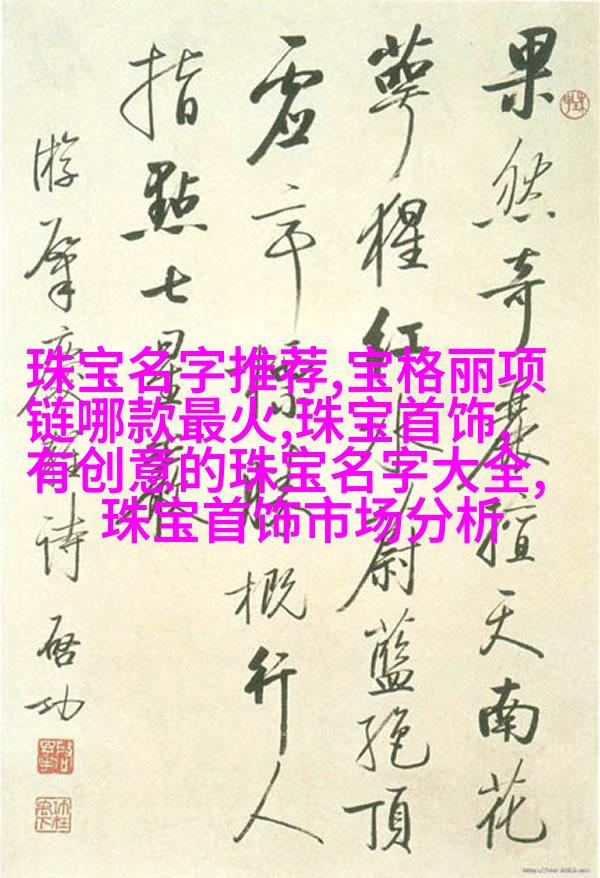 珠宝名字推荐,宝格丽项
链哪款最火,珠宝首饰,
有创意的珠宝名字大全,
珠宝首饰市场分析
果然奇擅天南花
萼猩紅蔚藍絕頂
虛亭標勝概行人
指點七星巖
游肇慶雜詩 啓功